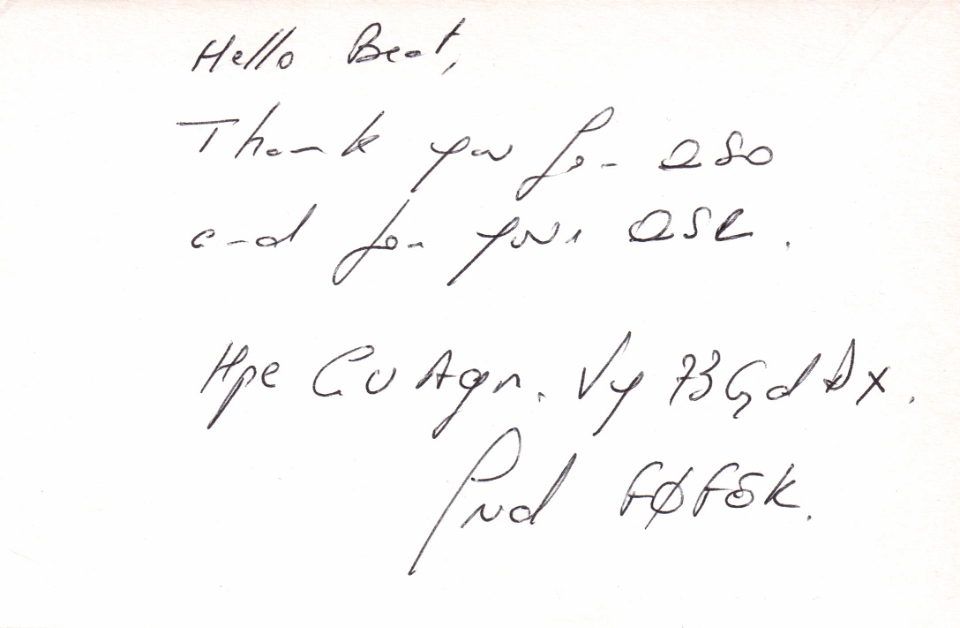 Hello Beat,
Thank you for QSO
and for your QSL.
Hpe CU Agn. Vy 73 Gd Dx.
FØFSK.